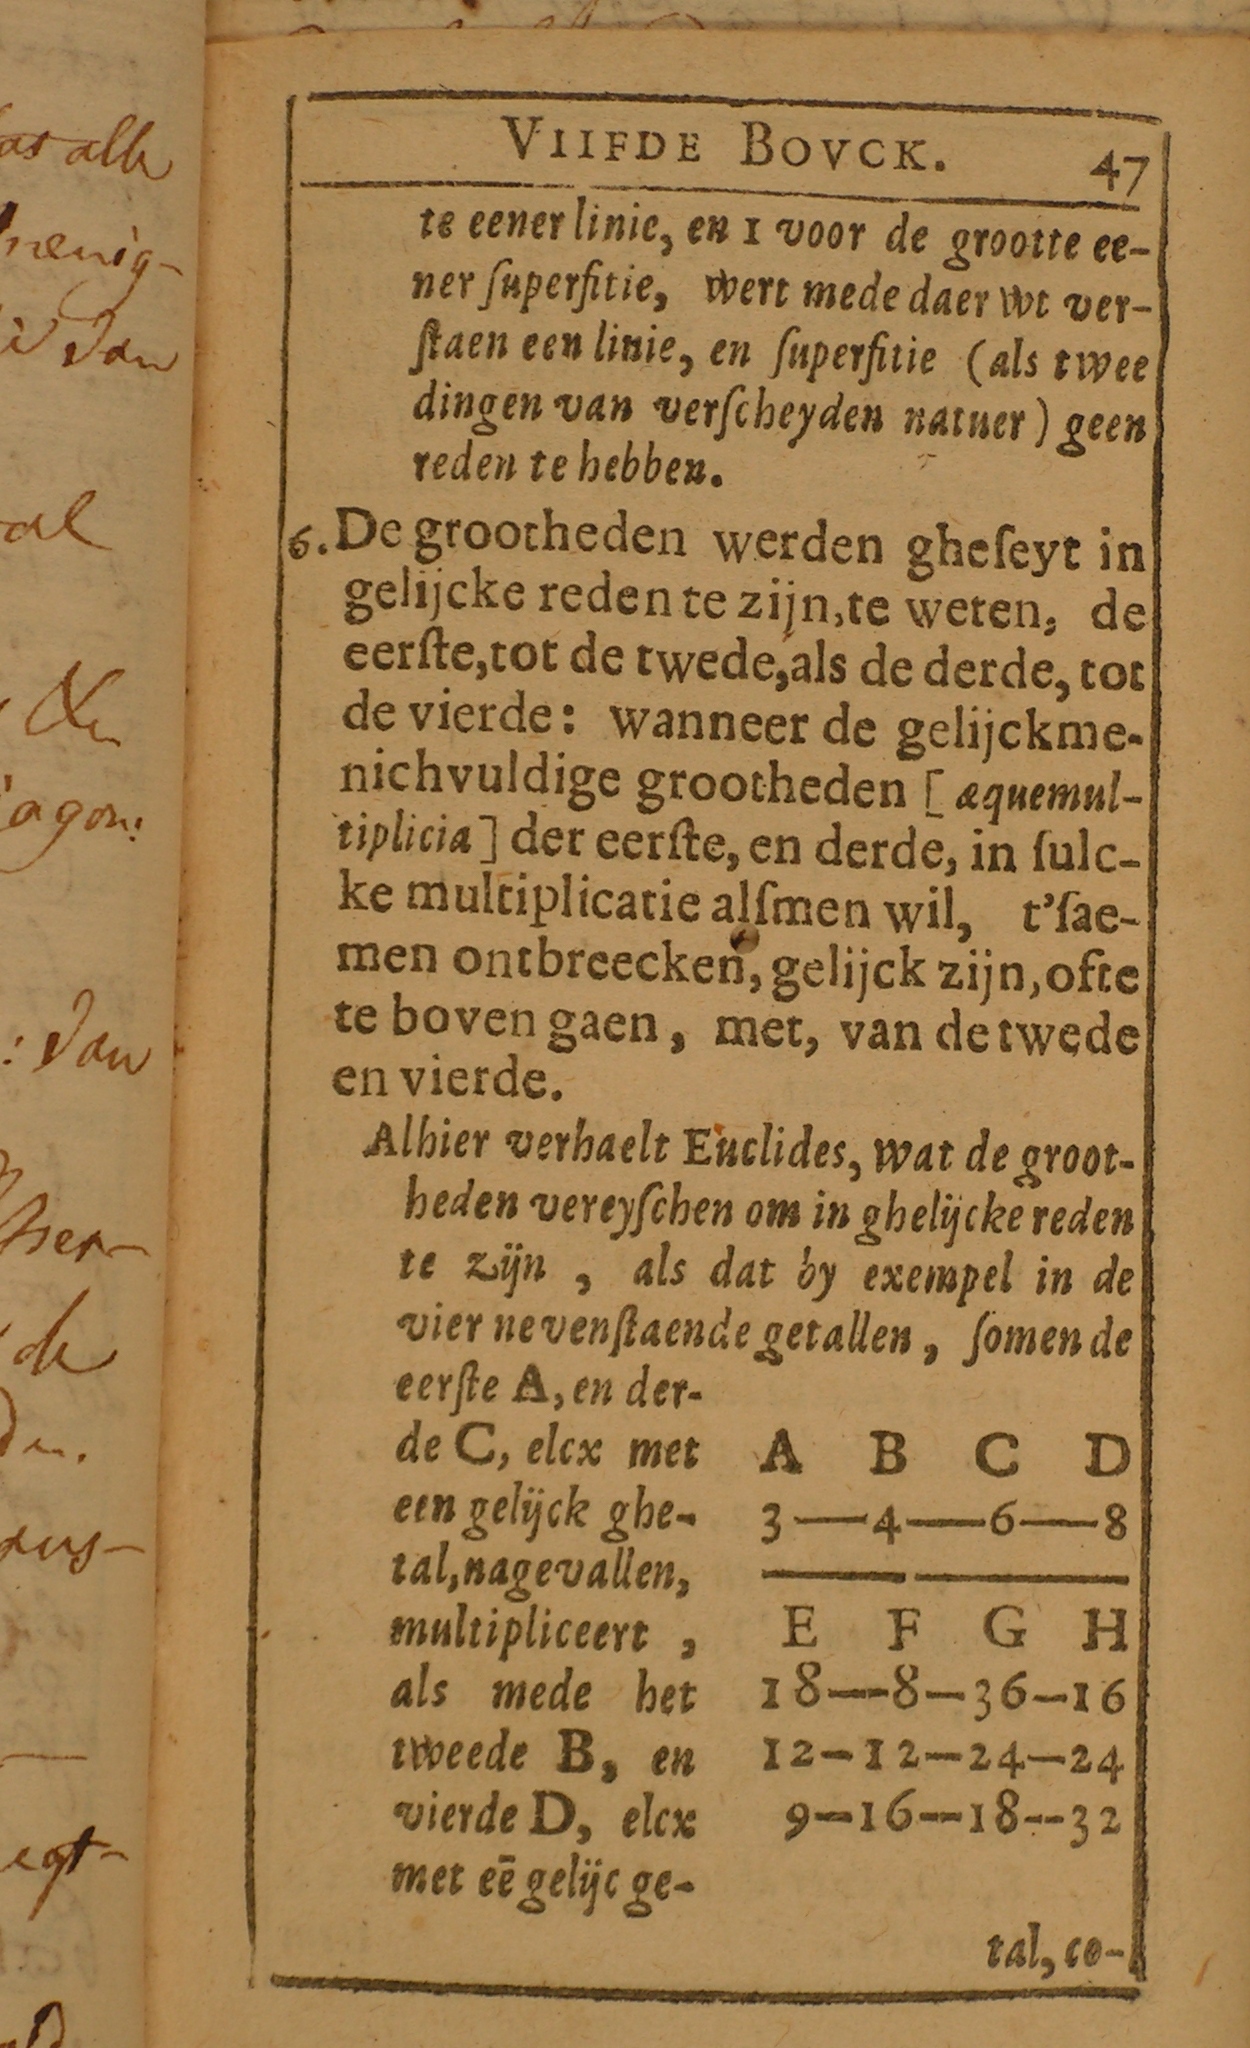 VIIFDE BOVCK. 47
te eener linie, en 1 voor de grootte ee-
ner ſuperfitie, wert mede daer wt ver-
ſtaen een linie, en ſuperfitie (als twee
dingen van verſcheyden natuer) geen
reden te hebben.
6. De grootheden werden gheſeyt in
gelijcke reden te zijn, te weten, de
eerſte, tot de twede, als de derde, tot
de vierde: wanneer de gelijckme-
nichvuldige grootheden [æquemul-
tiplicia] der eerſte, en derde, in ſulc-
ke multiplicatie alſmen wil, t'ſae-
men ontbreecken, gelijck zijn, ofte
te boven gaen, met, van de twede
en vierde.
Alhier verhaelt Euclides, wat de groot-
heden vereyſchen om in ghelijcke reden
te zijn, als dat by exempel in de
vier nevenſtaende getallen, ſomen de
eerſte A, en der-
de C, elcx met
een gelijck ghe-
tal, nagevallen,
multipliceert,
als mede het
tweede B, en
vierde D, elcx
met eē gelijc ge-
A B C D
3—4—6—8
E F G H
18—8—36—16
12—12—24—24
9—16—18—32
tal, co-
as alle
menig-
dan
al
den
agon:
: dan
her-
de
aus-
egt-